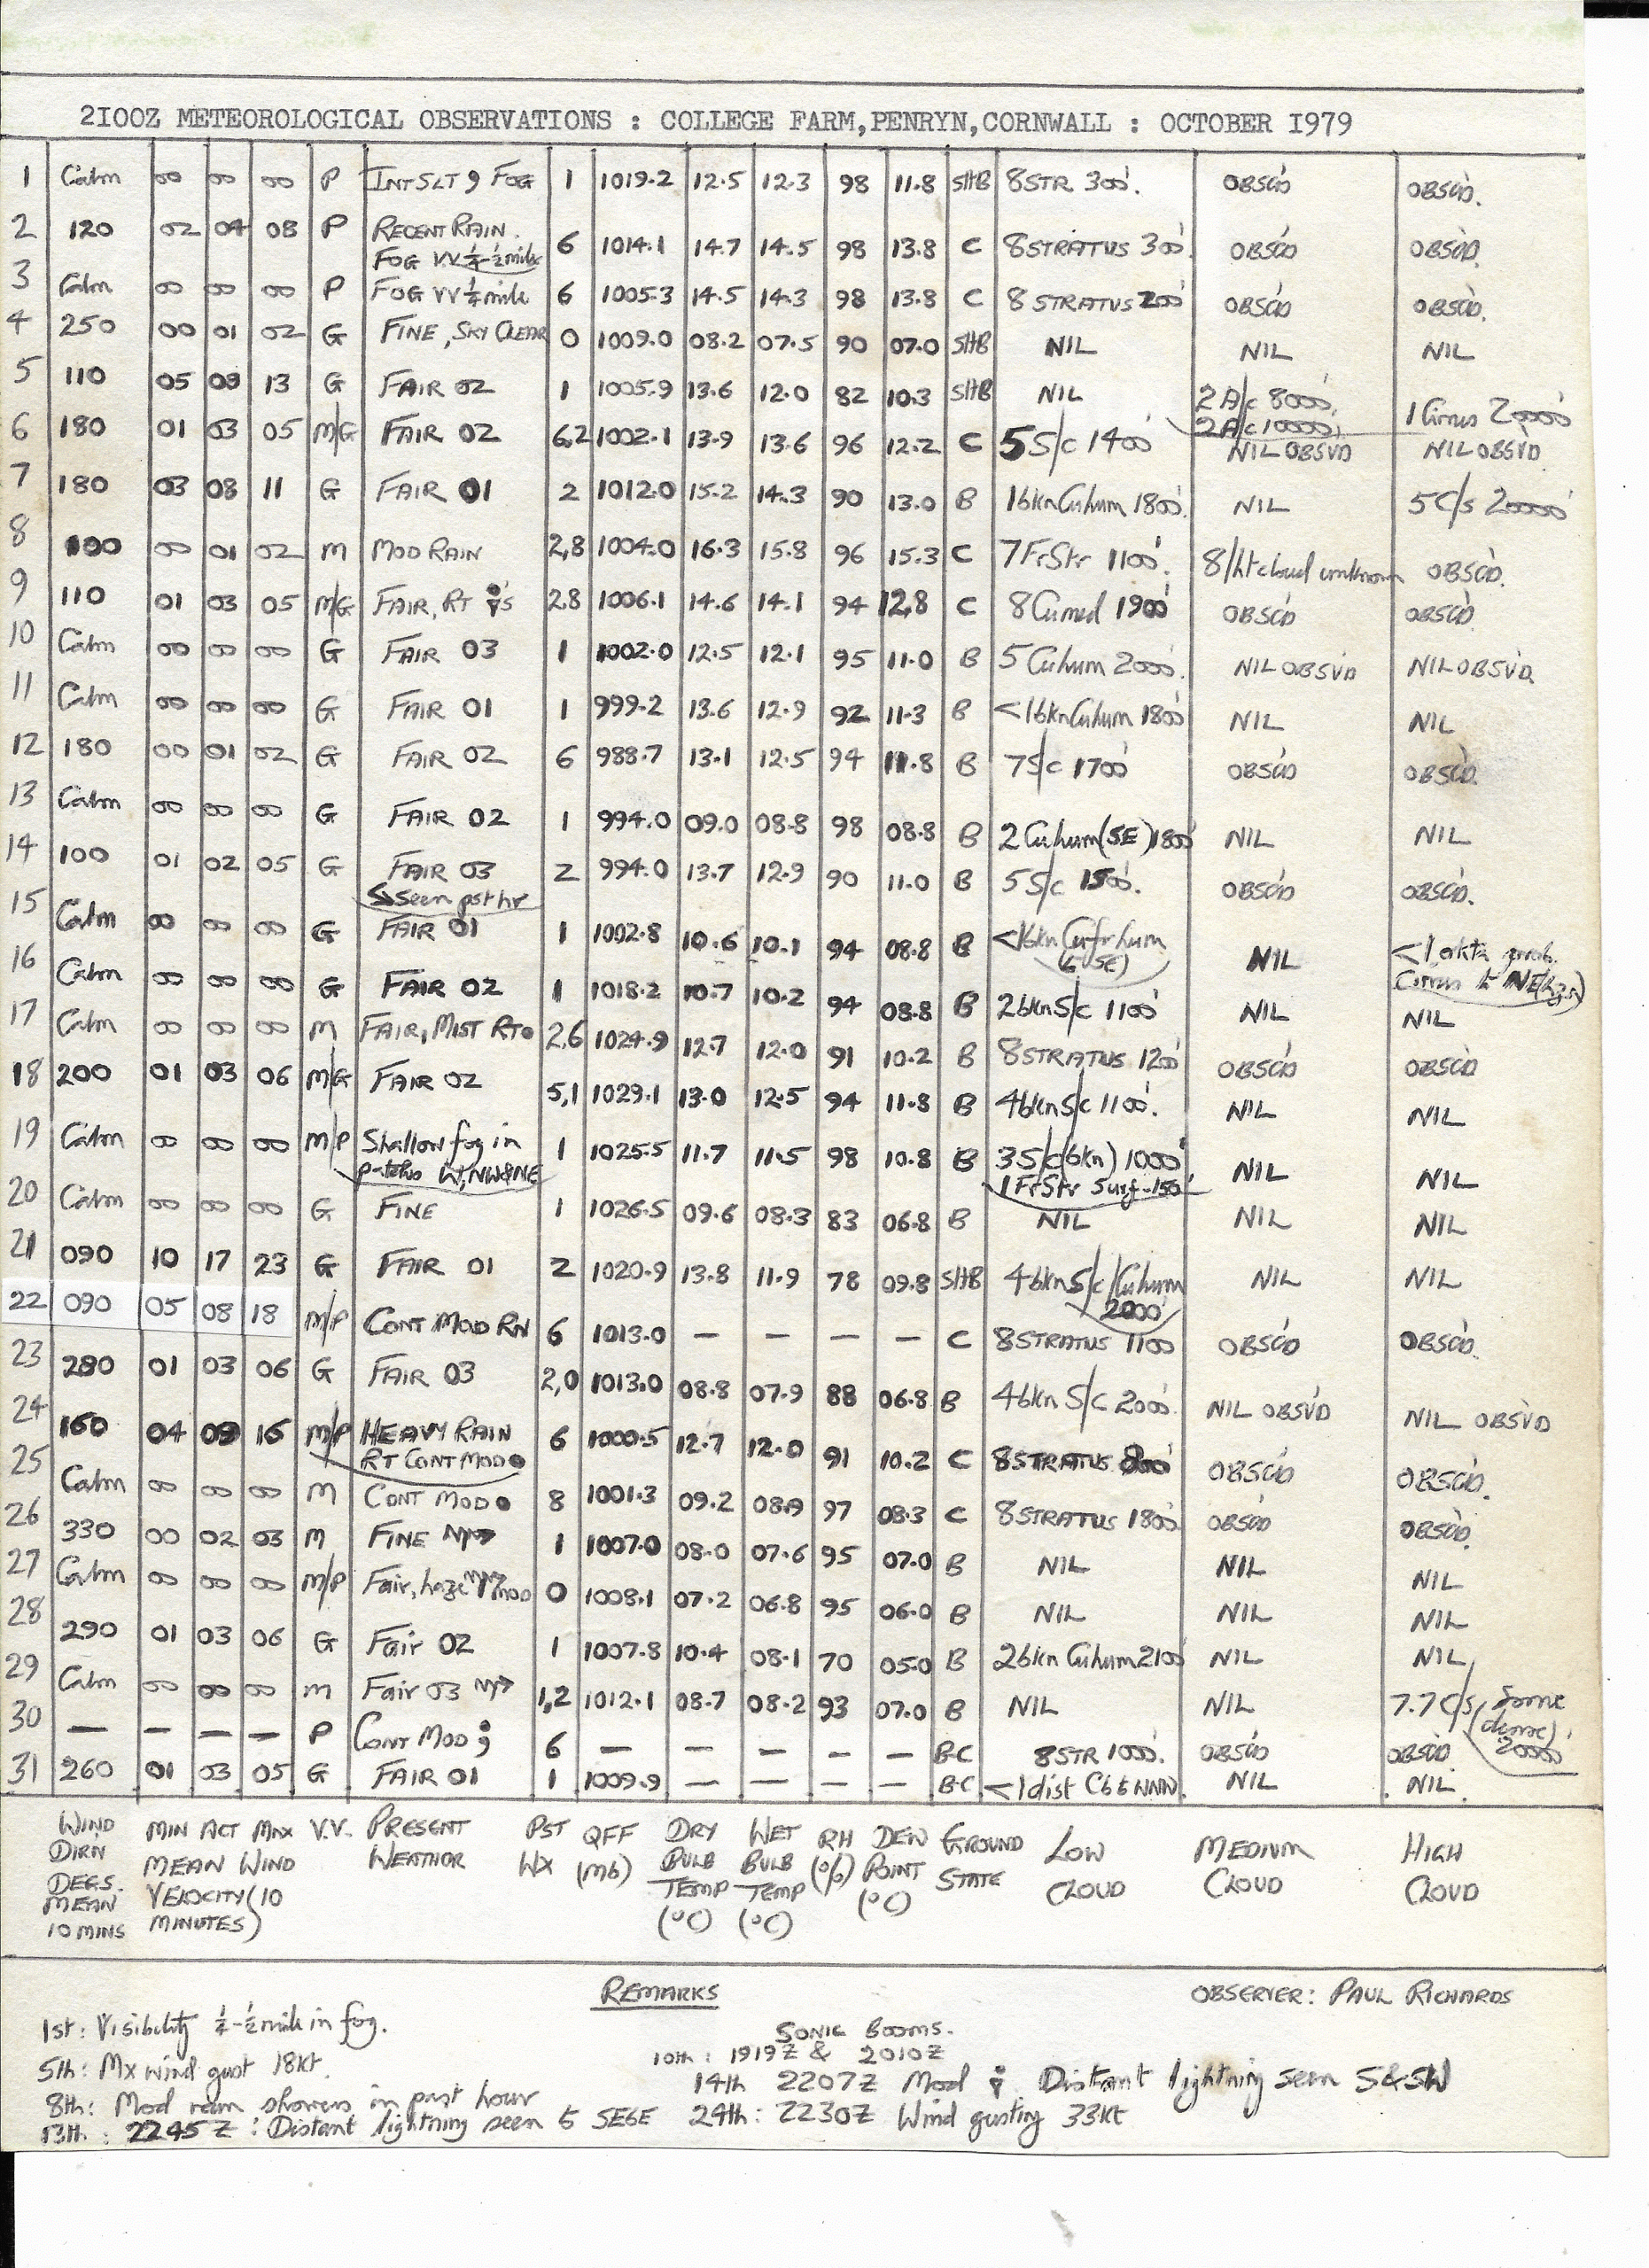 2100Z METEOROLOGICAL OBSERVATIONS : COLLEGE FARM,PENRYN,CORNWALL : OCTOBER 1979
1 Calm 00 00 00 P INT SLT 9 FOG 1 1019.2 12.5 12.3 98 11.8 SHB 8STR 300'. OBSC'D OBSC'D.
2 120 02 04 08 P RECENT RAIN.
FOG VV ¼-½ mile 6 1014.1 14.7 14.5 98 13.8 C 8STRATUS 300'. OBSC'D OBSC'D.
3 Calm 00 00 00 P FOG VV ¼ mile 6 1005.3 14.5 14.3 98 13.8 C 8 STRATUS 200' OBSC'D OBSC'D.
4 250 00 01 02 G FINE, SKY CLEAR 0 1009.0 08.2 07.5 90 07.0 SHB NIL NIL NIL
5 110 05 09 13 G FAIR 02 1 1005.9 13.6 12.0 82 10.3 SHB NIL 2 A/c 8000', 1 Cirrus 20000'
2 A/c 10000',
6 180 01 03 05 M/G FAIR 02 6,2 1002.1 13.9 13.6 96 12.2 C 5 S/c 1400' NIL OBSVD NIL OBSVD
7 180 03 08 11 G FAIR 01 2 1012.0 15.2 14.3 90 13.0 B 1bkn Cuhum 1800'. NIL 5 C/s 20000'
8 100 00 01 02 M MOD RAIN 2,8 1004.0 16.3 15.8 96 15.3 C 7FrStr 1100'. 8/ht cloud unknown OBSC'D.
9 110 01 03 05 M/G FAIR, RT 's 2,8 1006.1 14.6 14.1 94 12.8 C 8Cumed 1900' OBSC'D OBSC'D
10 Calm 00 00 00 G FAIR 03 1 1002.0 12.5 12.1 95 11.0 B 5 Cuhum 2000'. NIL OBSV'D NIL OBSV'D.
11 Calm 00 00 00 G FAIR 01 1 999.2 13.6 12.9 92 11.3 B <1bkn Cuhum 1800' NIL NIL
12 180 00 01 02 G FAIR 02 6 988.7 13.1 12.5 94 11.8 B 7S/c 1700' OBSC'D OBSC'D.
13 Calm 00 00 00 G FAIR 02 1 994.0 09.0 08.8 98 08.8 B 2 Cuhum (SE) 1800' NIL NIL
14 100 01 02 05 G FAIR 03 2 994.0 13.7 12.9 90 11.0 B 5 S/c 1500'. OBSC'D OBSC'D.
seen pst hr
15 Calm 00 00 00 G FAIR 01 1 1002.8 10.6 10.1 94 08.8 B <1bkn Cufrhum NIL <1 okta prob.
SE) Cirrus to NE
16 Calm 00 00 00 G FAIR 02 1 1018.2 10.7 10.2 94 08.8 B 2bkn S/c 1100' NIL NIL
17 Calm 00 00 00 M FAIR, MIST RT● 2,6 1024.9 12.7 12.0 91 10.2 B 8STRATUS 1200' OBSC'D OBSC'D
18 200 01 03 06 M/G FAIR 02 5,1 1029.1 13.0 12.5 94 11.8 B 4bkn S/c 1100'. NIL NIL
19 Calm 00 00 00 M/P Shallow fog in 1 1025.5 11.7 11.5 98 10.8 B 3S/c (bkn) 1000' NIL NIL
patches W, NW&NE 1 FrStr Surf-150'
20 Calm 00 00 00 G FINE 1 1026.5 09.6 08.3 83 06.8 B NIL NIL NIL
21 090 10 17 23 G FAIR 01 2 1020.9 13.8 11.9 78 09.8 SHB 4bkn S/c/Cuhum NIL NIL
2000'
22 090 05 08 18 M/P CONT MOD RN 6 1013.0 — — — — C 8STRATUS 1100 OBSC'D OBSC'D.
23 280 01 03 06 G FAIR 03 2,0 1013.0 08.8 07.9 88 06.8 B 4bkn S/C 2000'. NIL OBSV'D NIL OBSV'D
24 160 04 09 16 M/P HEAVY RAIN 6 1000.5 12.7 12.0 91 10.2 C 8STRATUS 800' OBSC'D OBSC'D.
RT CONT MOD●
25 Calm 00 00 00 M CONT MOD● 8 1001.3 09.2 08.9 97 08.3 C 8STRATUS 1800' OBSC'D OBSC'D.
26 330 00 02 03 M FINE 1 1007.0 08.0 07.6 95 07.0 B NIL NIL NIL
27 Calm 00 00 00 M/P Fair, haze mod 0 1008.1 07.2 06.8 95 06.0 B NIL NIL NIL
28 290 01 03 06 G Fair 02 1 1007.8 10.4 08.1 70 05.0 B 2bkn Cuhum 2100' NIL NIL
29 Calm 00 00 00 M Fair 03 1,2 1012.1 08.7 08.2 93 07.0 B NIL NIL 7.7 C/s, some
(dense)
20000'
30 — — — — P CONT MOD 6 — — — — — B-C 8STR 1000'. OBSC'D OBSC'D
31 260 01 03 05 G FAIR 01 1 1009.9 — — — — B-C <1dist Cb to NNW. NIL NIL.
WIND MIN ACT MAX V.V. PRESENT PST QFF DRY WET RH DEW GROUND LOW MEDIUM HIGH
DIRN MEAN WIND WEATHER WX (mb) BULB BULB (%) POINT STATE CLOUD CLOUD CLOUD
DEGS. VELOCITY (10 TEMP TEMP (°C)
MEAN MINUTES) (°C) (°C)
10 MINS
REMARKS
OBSERVER: PAUL RICHARDS
1st: Visibility ¼-½ mile in fog.
5th: Mx wind gust 18kt.
8th: Mod rain showers in past hour
13th: 2245Z: Distant lightning seen to SE&E
SONIC BOOMS.
10th: 1919Z & 2010Z
14th 2207Z Mod . Distant lightning seen S&SW
24th: 2230Z Wind gusting 33kt